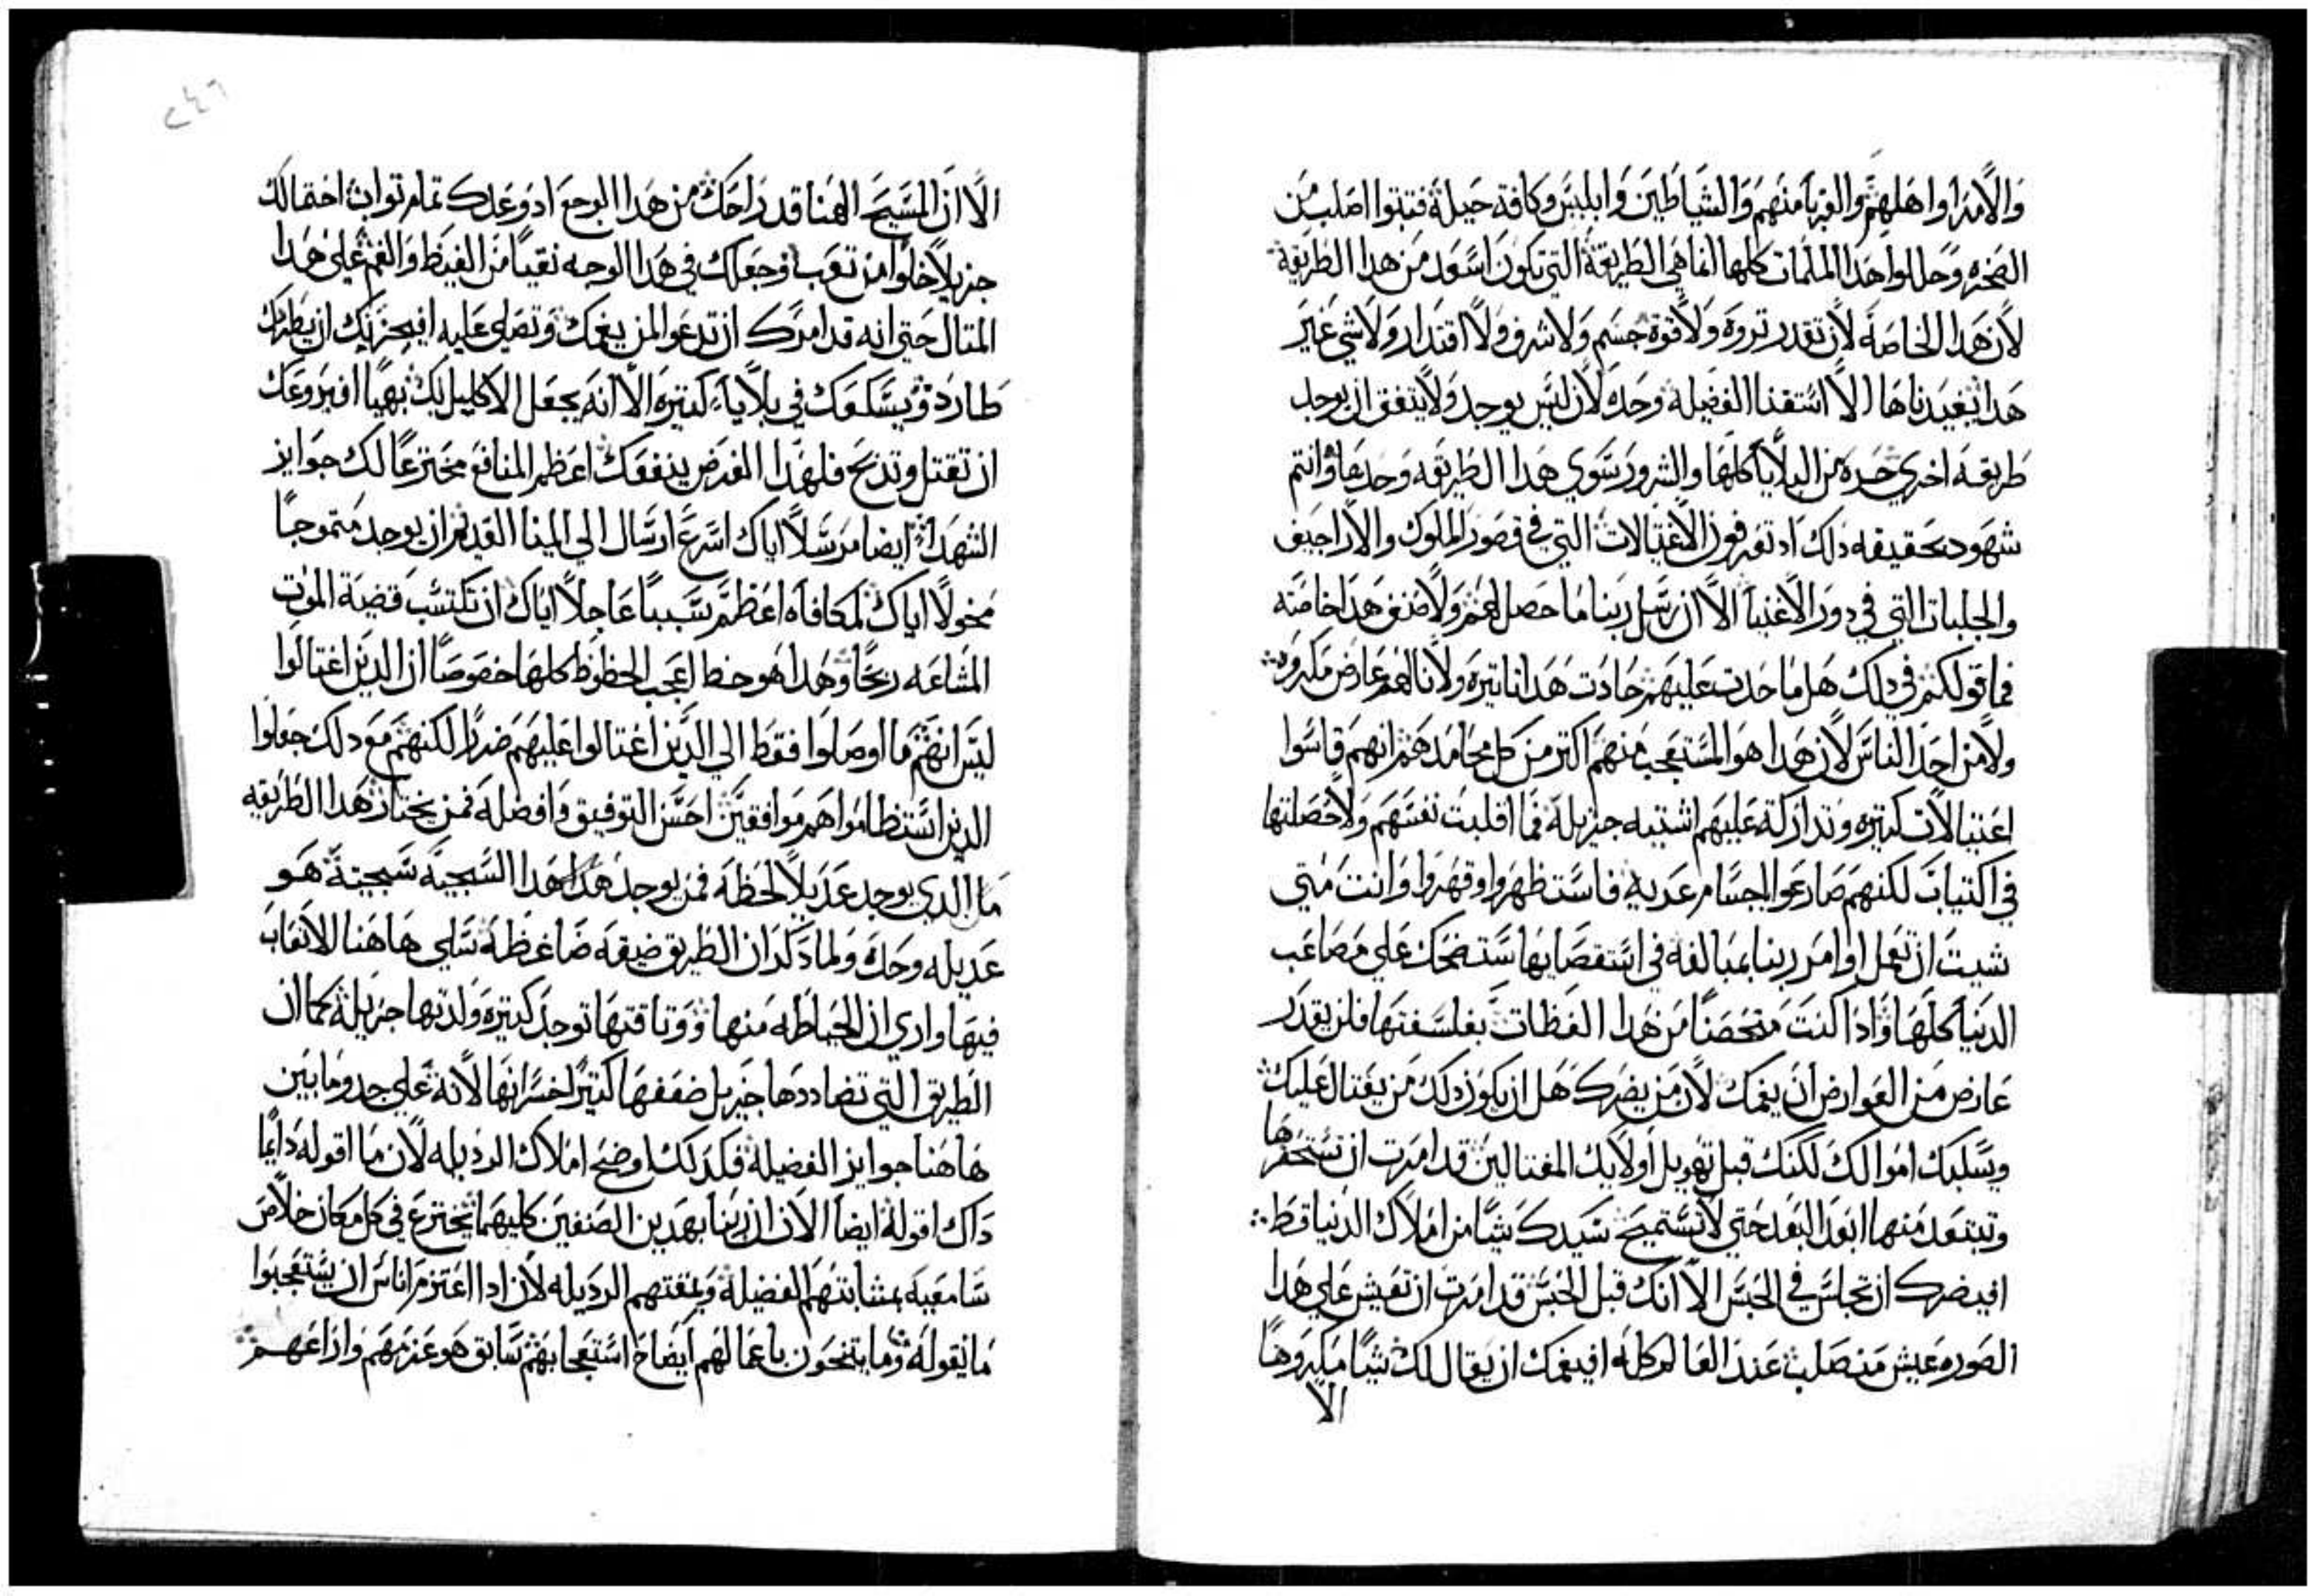 والامرا واهلهم والغربا منهم والشياطين وابليس وكافة حيلة فثبتوا اصلب من
الصخره وحللوا هذا الملمات كلها الفاهي الطريقة التي تكون اسعد من هدا الطريقة
لان هدا الخاصة لان تقدر تروه ولا قوة جسم ولا شرف ولا اقتدار ولا شي غير
هدا يفيدناها الا استقنا الفضيلة وحده لان ليس يوجد ولا يتفق ان يوجد
طريقه اخري حره من البلايا كلها والشرور سوي هدا الطريقه وحدها وانتم
شهود بحقيقه دلك اد تعرفون الاغتيالات التي في قصور الملوك والاراجيف
والجلبات التي في دور الاغنيا الا ان رسل ربنا ما حصل لهم ولا صنف هدا خاصته
فما قولكم في دلك هل ما حدت عليهم حادت هدا تاتيره ولا نالهم عارض مكروه
ولا من احد الناس لان هدا هو المستعجب منهم اكتر من كل محامدهم انهم قاسوا
اغتيالات كتيره وتداركة عليهم اشتيه جزيله فما اقلبت نفسهم ولا حصلتها
في اكتياب لكنهم صارعوا اجسام عديه فاستظهروا وقهروا وانت متي
شيت ان تعمل اوامر ربنا بمبالغه في استقصايها ستضحك علي مصاعب
الدنيا كلها وادا كنت متحصنا من هدا العظات بفلسفتها فلن يقدر
عارض من العوارض ان يغمك لان من يضرك هل ان يكون دلك من يغتال عليك
ويسلبك اموالك لكنك قبل تهويل اولايك المغتالين قد امرت ان تستحقرها
وتبتعد منها ابعد البعد حتي لا تستميح سيدك شيا من املاك الدنيا قط
افيضرك ان تجلس في الحبس الا انك قبل الحبس قد امرت ان تعيش علي هدا
الصوره عيش من صلب عند العالم كله افيغمك ان يقال لك شيا مكروها
الا
٢٤٦
الا ان المسيح الهنا قد راحك من هدا الوجع اد وعدك تمام تواب احتمالك
جزيلا خلوا من تعب وجعلك في هدا الوجه نقيا من الغيظ والغم علي هدا
المتال حتي انه قد امرك ان تدعوا لمن يغمك وتصلي عليه افيحزنك ان يطردك
طارد ويسكعك في بلايا كتيره الا انه يجعل الاكليل لك بهيا افيروعك
ان تقتل وتدبح فلهدا الغرض ينفعك اعظم المنافع مخترعا لك جوايز
الشهدا ايضا مرسلا اياك اسرع ارسال الي المينا القدير ان يوجد متموجا
مخولا اياك لمكافاه اعظم سببا عاجلا اياك ان تكتسب قضية الموت
المشاعه ربحا وهدا هو حظ اعجب الحظوظ كلها خصوصا ان الدين اغتالوا
ليس انهم ما اوصلوا فقط الي الدين اغتالوا عليهم ضررا لكنهم مع دلك جعلوا
الدين استظاموهم موافقين احسن التوفيق وافضله فمن يختار هدا الطريقه
ما الدي يوجد عديلا لحظه فمن يوجد هدا السجيه سجيته هو
عديله وحده ولما دكر ان الطريق ضيقه ضاغظه سلي هاهنا الاتعاب
فيها واري ان الحياطه منها ووتاقتها توجد كتيره ولدتها جزيله كما ان
الطريق التي تضاددها جزيل ضعفها كتير اخسرانها لانه علي حد وما بين
هاهنا جوايز الفضيله فكدلك اوضح املاك الرديله لان ما اقوله دايما
داك اقوله ايضا الان ان ربنا بهدين الصنفين كليهما يخترع في كل مكان خلاص
سامعيه بمشابتهم الفضيله وبمقتهم الرديله لان ادا اعتزم اناس ان يستعجبوا
ما يقوله وما ينجحون باعمالهم ايضاح استعجابهم سابق هو عزمهم واراعهم